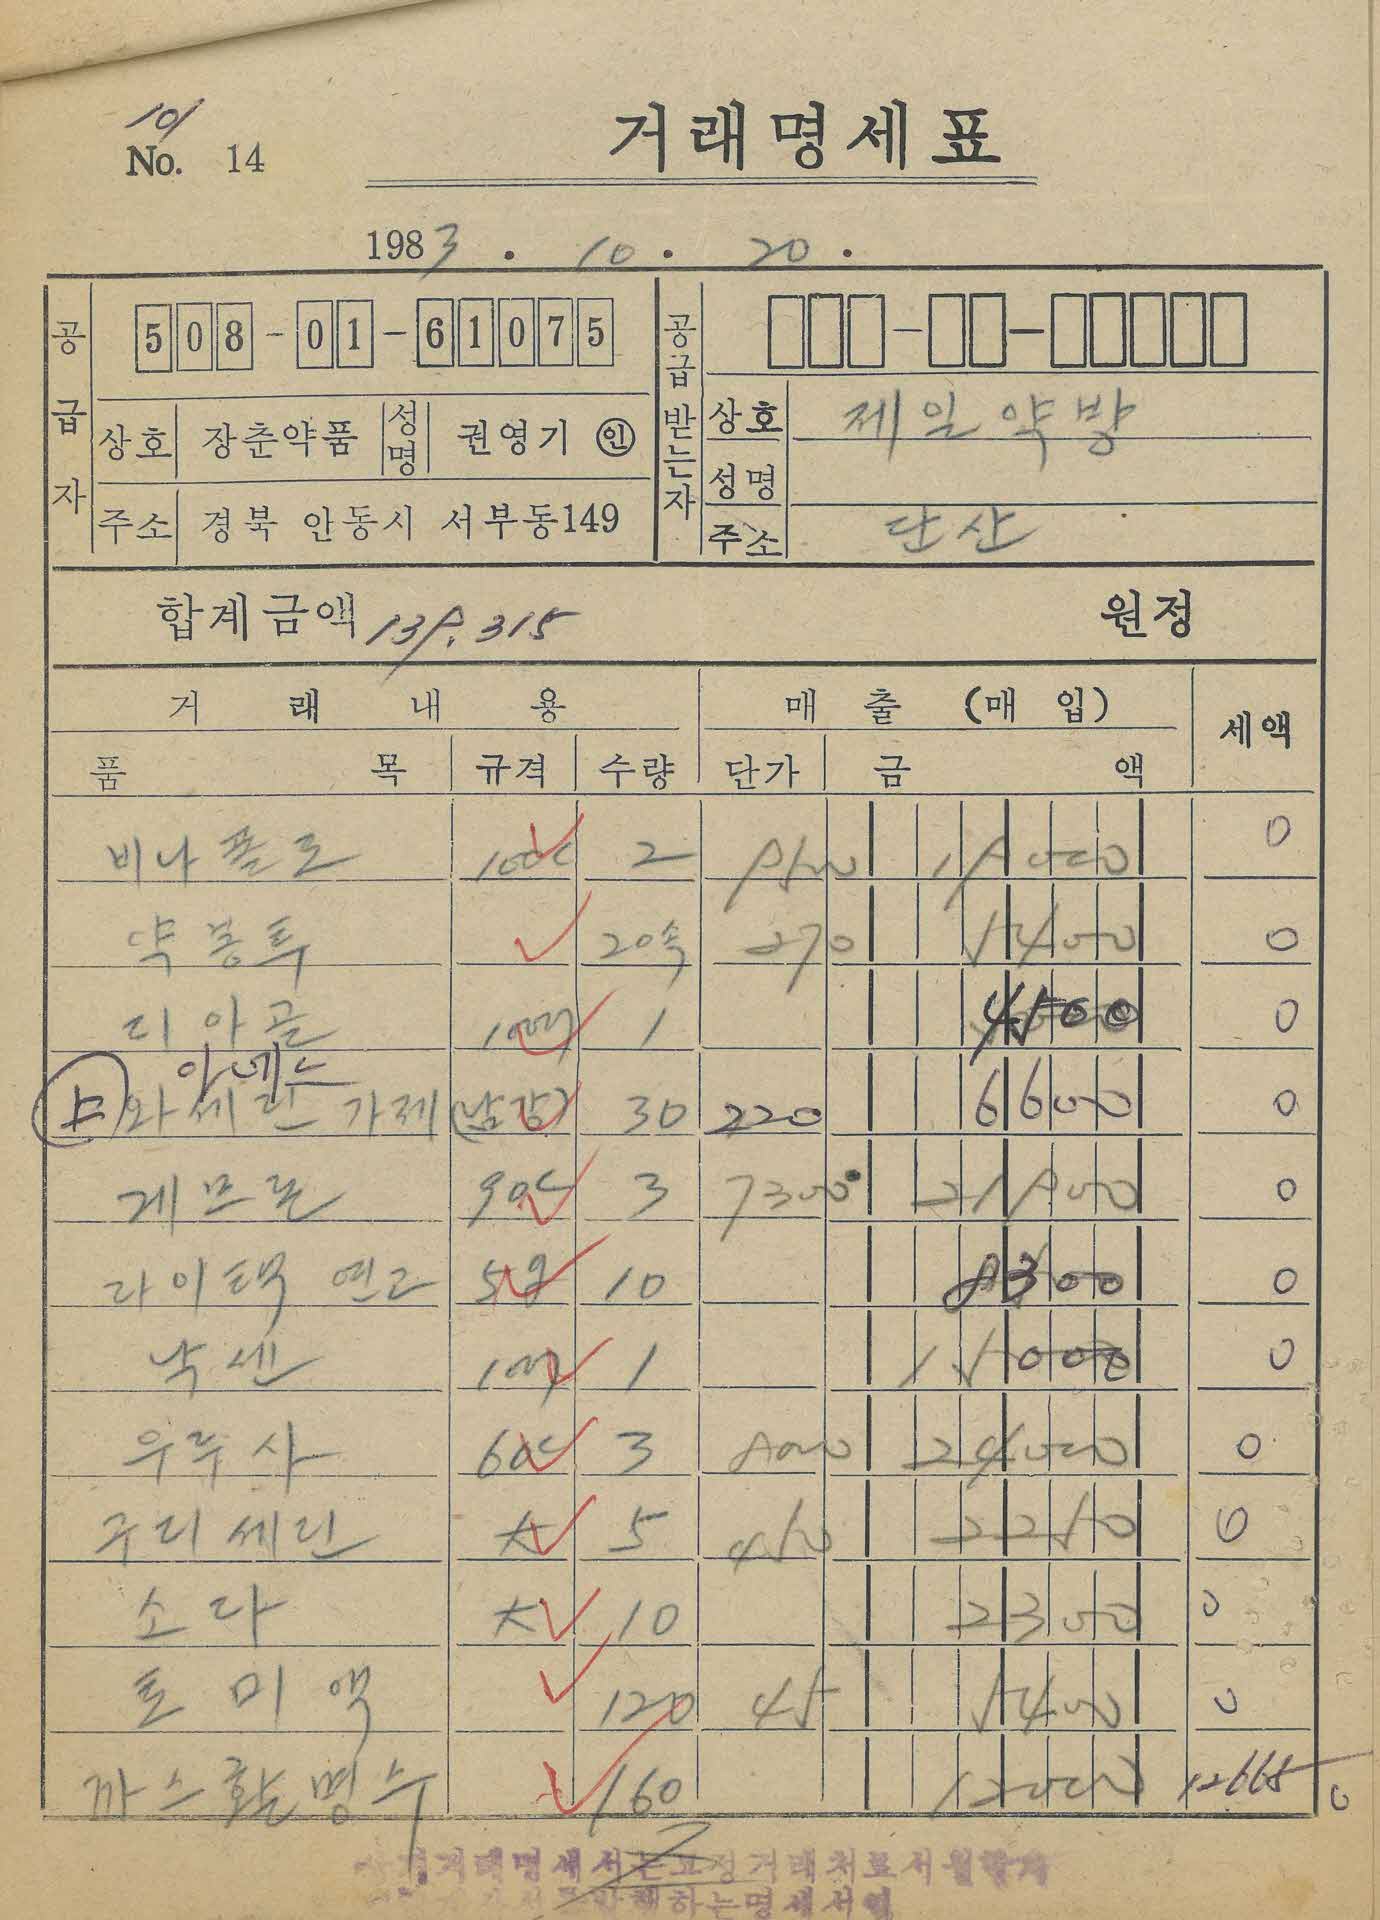 10/
No. 14
거래명세표
1983. 10. 20.
공급자
508-01-61075
상호 장춘약품 성명 권영기 ㊞
주소 경북 안동시 서부동149
공급받는자
상호 제일약방
성명
주소 단산
합계금액 139,315 원정
거래내용 매출(매입) 세액
품목 규격 수량 단가 금액
비나폴로 100C 2 9500 19000 0
약봉투 20속 270 5400 0
디아골 100T 1 4500 0
아네스
와세린 가제 (남강) 30 220 6600 0
게므론 90C 3 7300 21900 0
라이택 연고 5g 10 8300 0
낙센 100T 1 15000 0
우루사 60C 3 8000 24000 0
구리세린 大 5 450 2250 0
소다 大 10 2300 0
토미액 120 45 5400 0
까스활명수 160 12000 12665 0
거래명세서는고정거래처로서월합계
발행하는명세서임